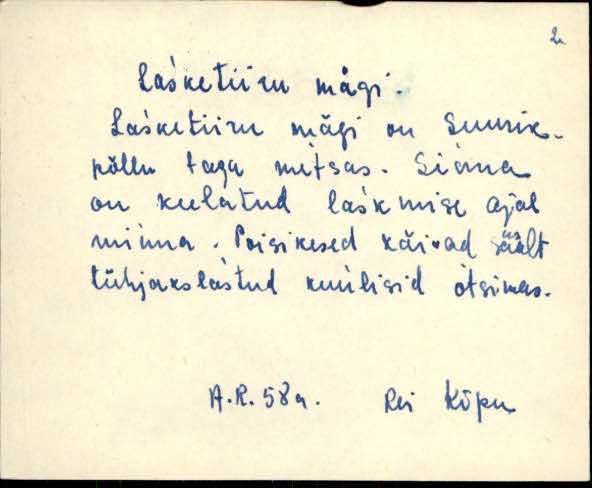 2.
Laśketiiru mägi.
Laśketiiru mägi on Suurik-
põllu taga metsas. Siǹna
on keelatud laśkmise ajal
miǹna. Poisikesed käivad säält
tühjakslaśtud kuuĺisid otsimas.
A.R. 58a. Rei Kõpu